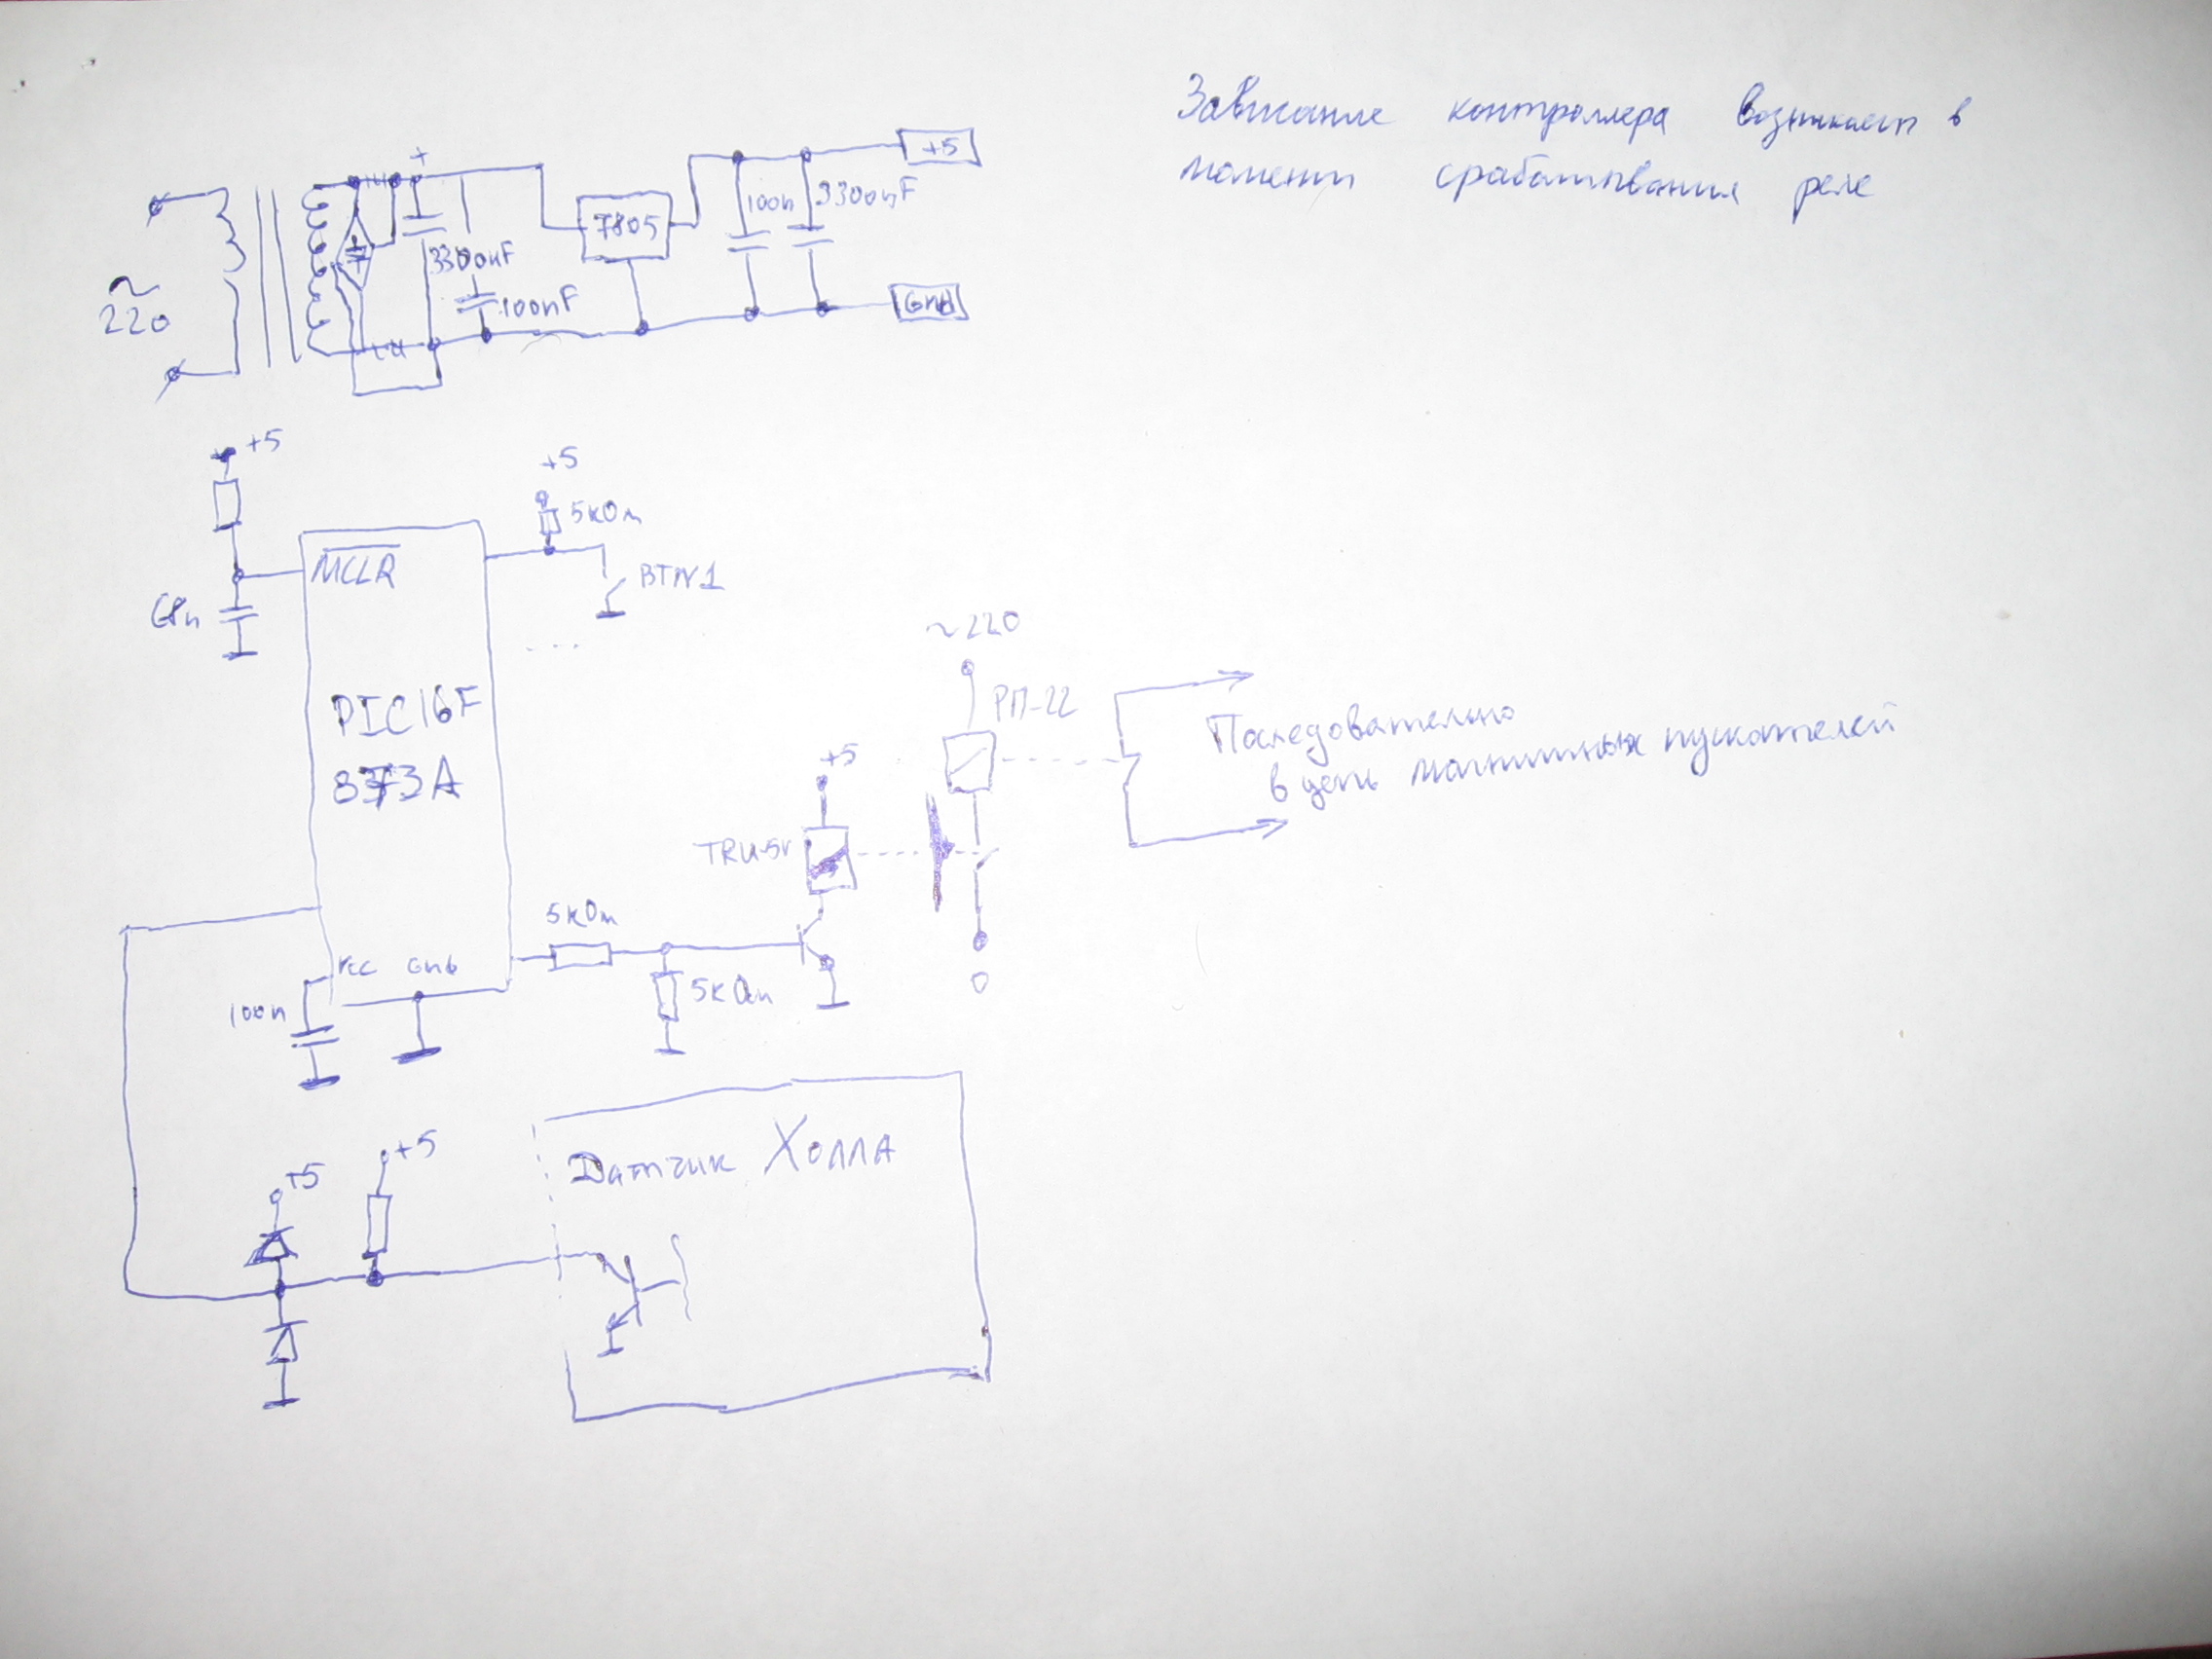 Зависание контроллера возникает в
момент срабатывания реле
~
220
+
3300uF
100nF
7805
100n
3300uF
+5
Gnd
+5
68n
MCLR
PIC16F
873A
Vcc Gnd
100n
+5
5кОм
BTN1
5кОм
5кОм
+5
TRU-5V
~220
РП-22
0
Последовательно
в цепь магнитных пускателей
+5
+5
Датчик Холла